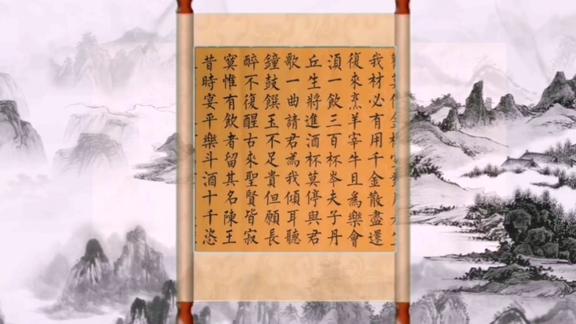 我材必有用千金散盡還
復來烹羊宰牛且為樂會
須一飲三百杯岑夫子丹
丘生將進酒杯莫停與君
歌一曲請君為我傾耳聽
鐘鼓饌玉不足貴但願長
醉不復醒古來聖賢皆寂
寞惟有飲者留其名陳王
昔時宴平樂斗酒十千恣